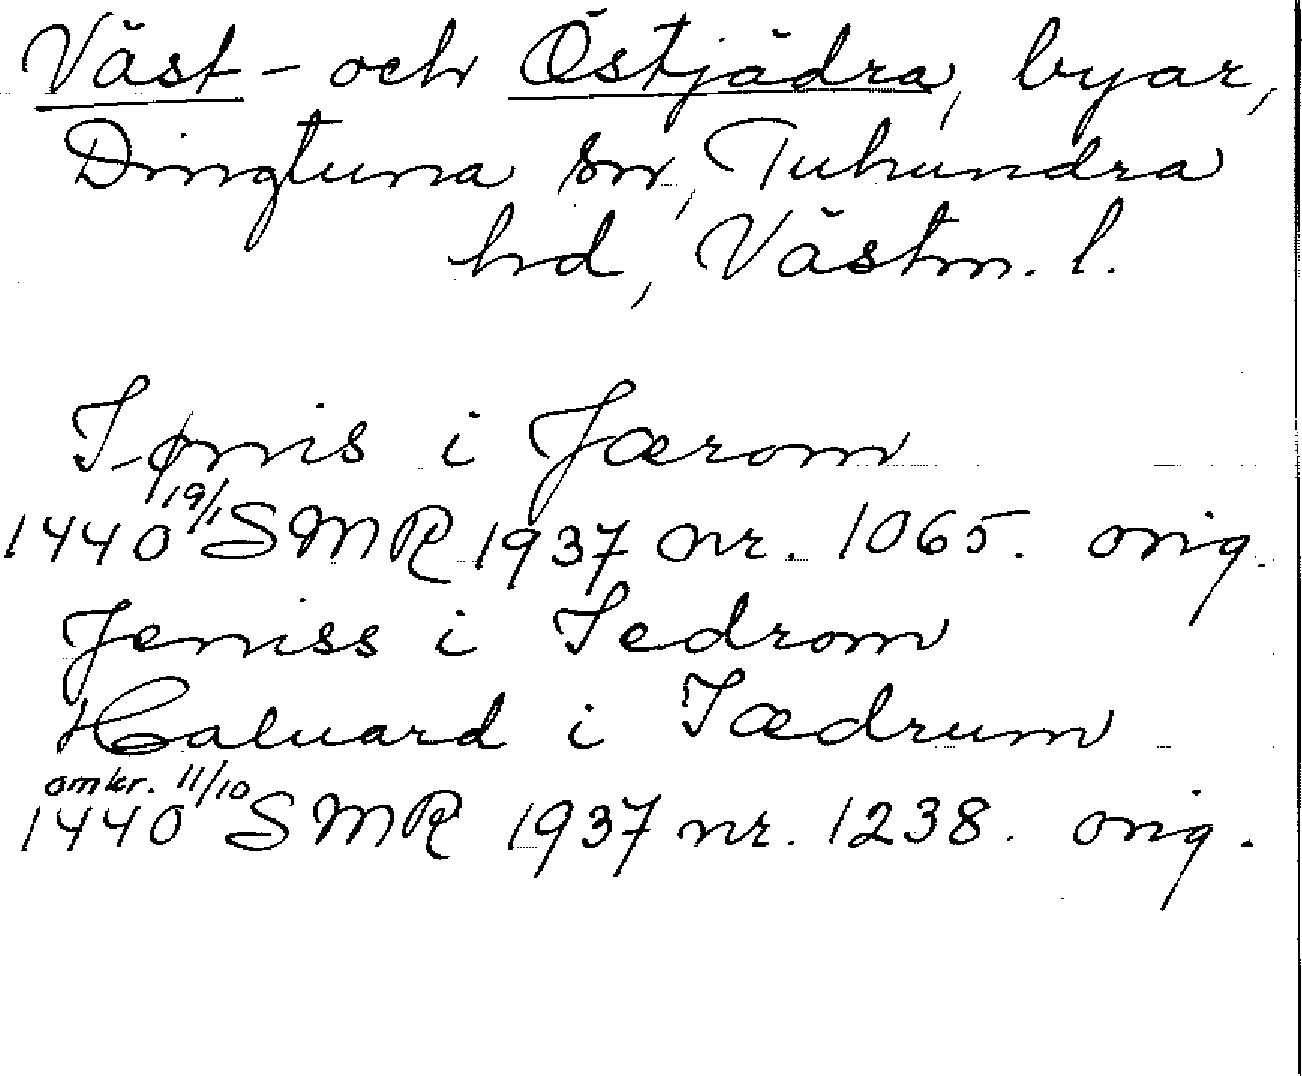 Väst- och Östjädra, byar,
Dingtuna sn, Tuhundra
hd, Västm. l.
Iønis i Jærom
1440 19/1 SMR 1937 nr. 1065. orig.
Jeniss i Iedrom
Haluard i Iædrum
omkr. 11/10
1440 SMR 1937 nr. 1238. orig.